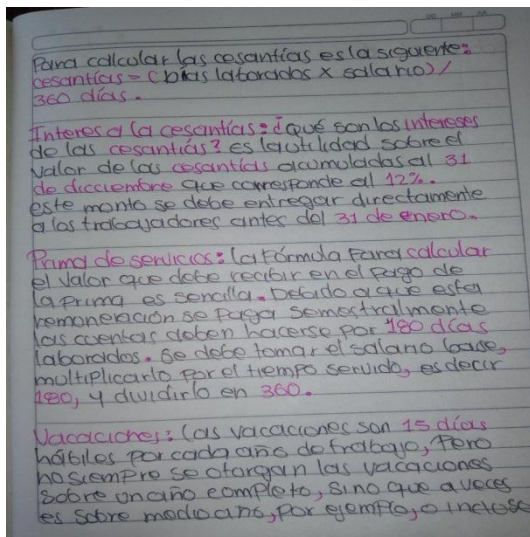 Para calcular las cesantías es la siguiente:
cesantías = (Días laborados x salario) /
360 días.
Interes a la cesantías: ¿Qué son los intereses
de las cesantías? Es la utilidad sobre el
valor de las cesantías acumuladas al 31
de dicciembre que corresponde al 12%.
este monto se debe entregar directamente
a los trabajadores antes del 31 de enero.
Prima de servicios: la Fórmula Para calcular
el valor que debe recibir en el Pago de
la Prima es sencilla. Debido a que esta
remoneración se Paga semestralmente
las cuentas deben hacerse por 180 días
laborados. Se debe tomar el salario base,
multiplicarlo Por el tiempo servido, es decir
180, y dividirlo en 360.
Vacaciones: Las vacaciones son 15 días
hábiles por cada año de trabajo, Pero
no siempre se otorgan las vacaciones
sobre un año completo, Sino que a veces
es sobre medio año, Por ejemplo, o incluso